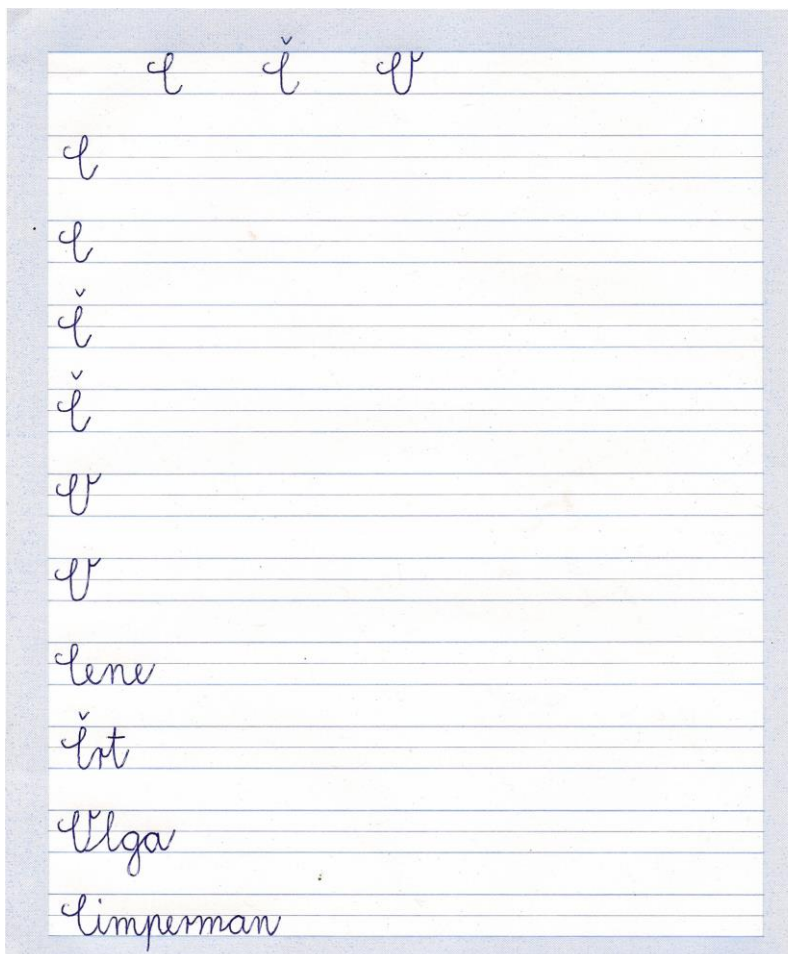 C Č O
C
C
Č
Č
O
O
Cene
Črt
Olga
Cimperman